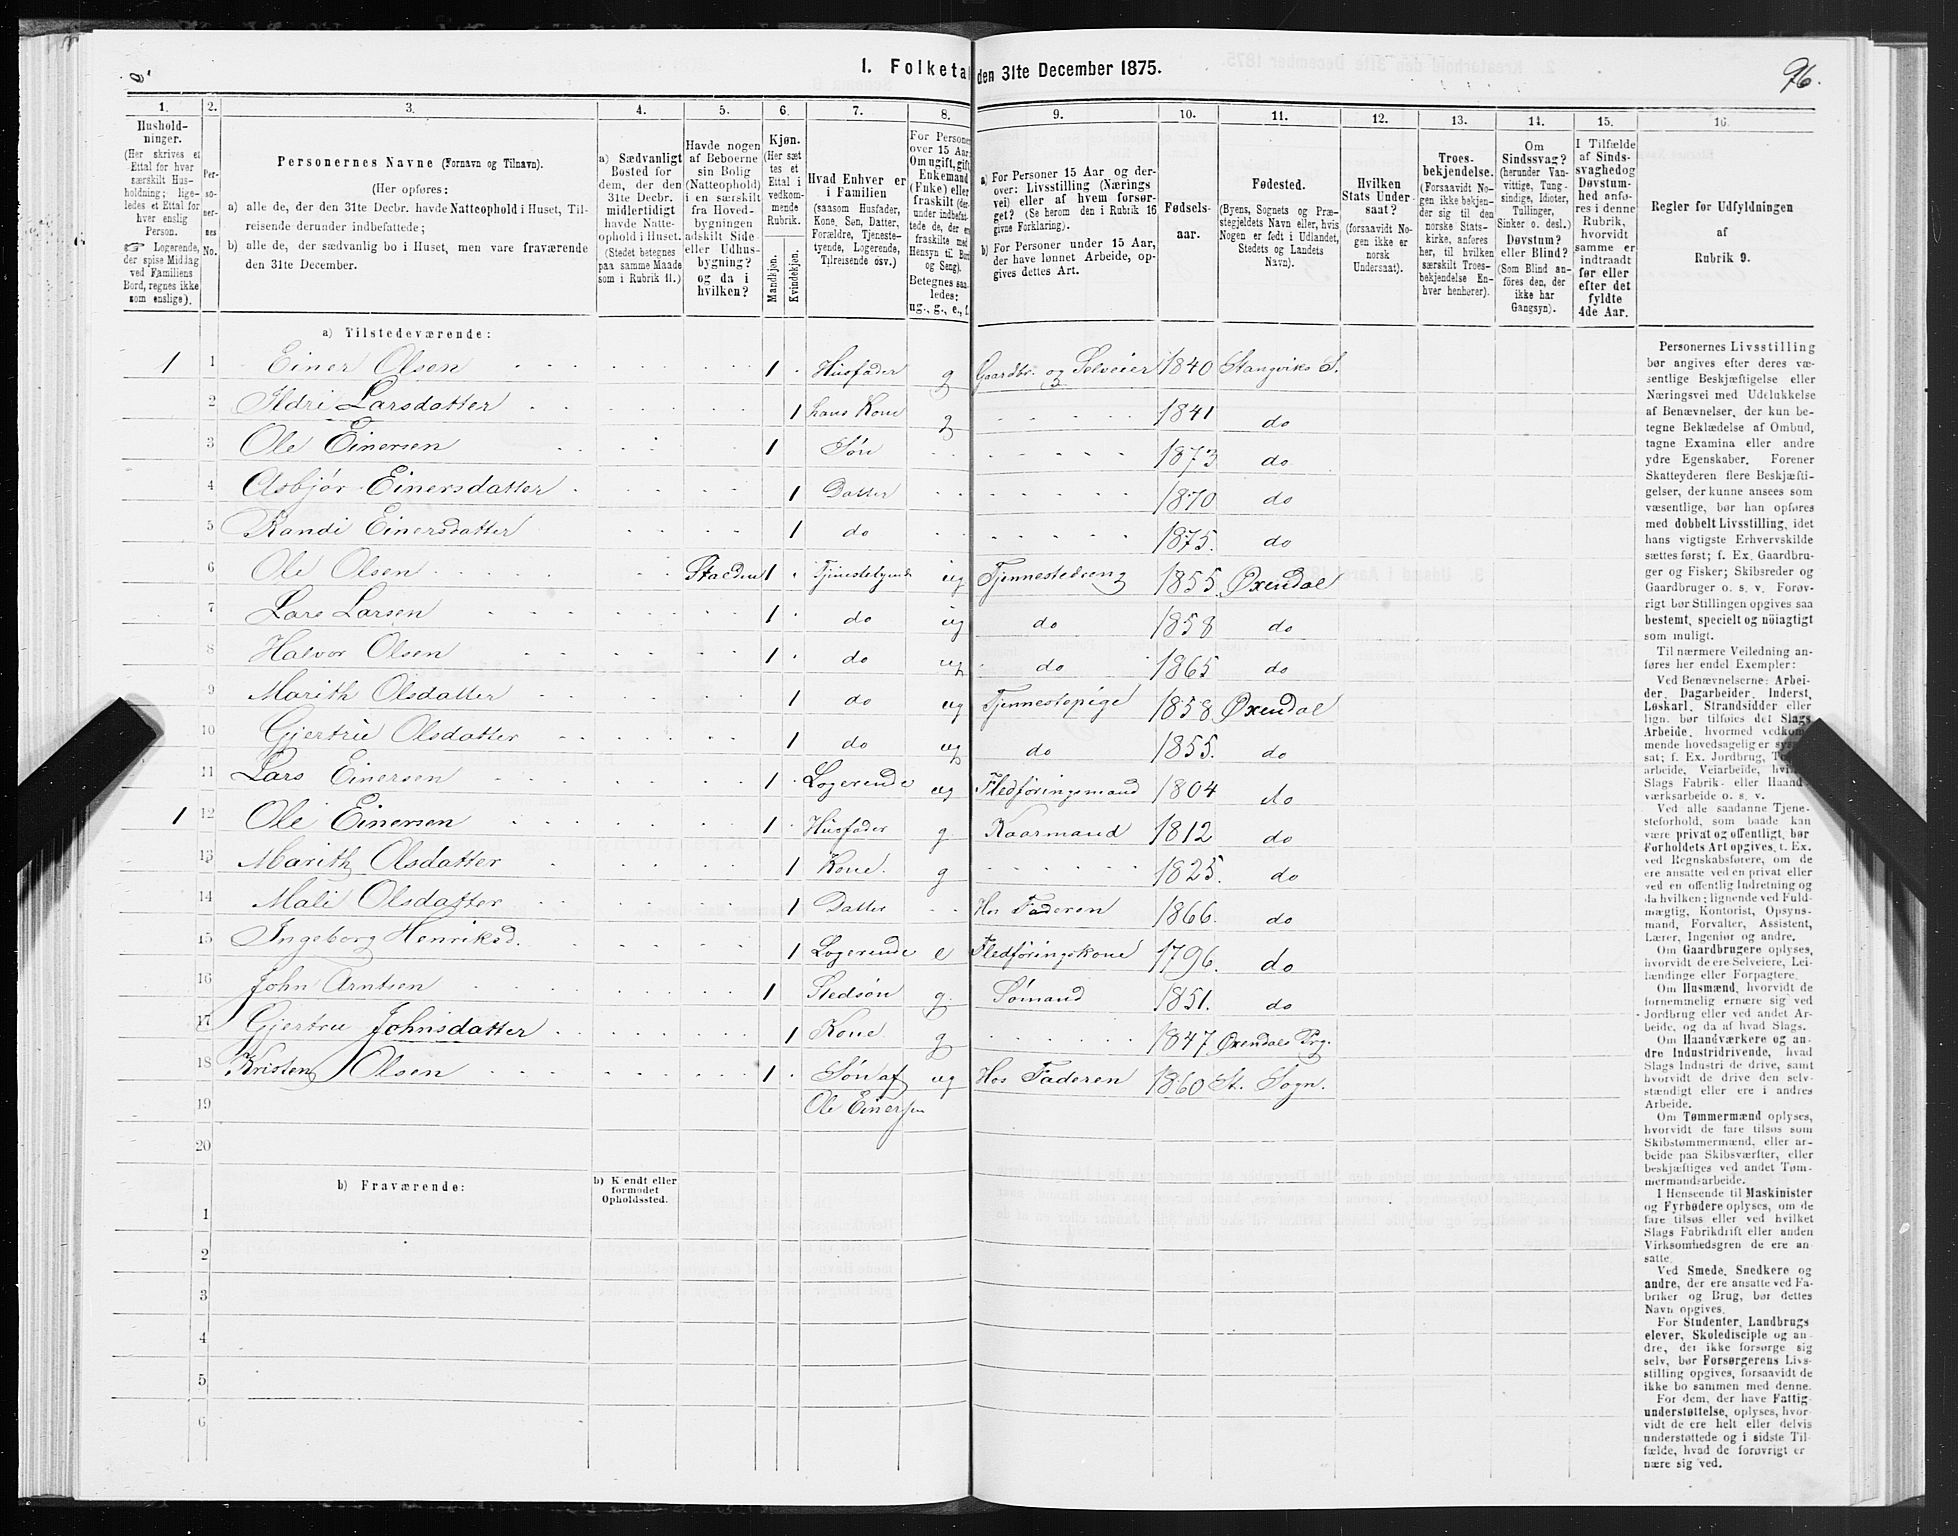 1. Folketal den 31te December 1875.
96.
1. 2. 3. 4. 5. 6. 7. 8. 9. 10. 11. 12. 13. 14. 15. 16.
Hushold-
ninger.
(Her skrives et
Ettal for hver
særskilt Hus-
holdning; lige-
ledes et Ettal for
hver enslig
Person.
☞ Logerende,
der spise Middag
ved Familiens
Bord, regnes ikke
som enslige).
Per-
so-
ner-
nes
No.
Personernes Navne (Fornavn og Tilnavn).
(Her opføres:
a) alle de, der den 31te Decbr. havde Natteophold i Huset, Til-
reisende derunder indbefattede;
b) alle de, der sædvanlig bo i Huset, men vare fraværende
den 31te December.
a) Sædvanligt
Bosted for
dem, der den
31te Decbr.
midlertidigt
havde Natte-
ophold i Huset.
(Stedet betegnes
paa samme Maade
som i Rubrik 11.)
Havde nogen
af Beboerne
sin Bolig
(Natteophold)
i en særskilt
fra Hoved-
bygningen
adskilt Side
eller Udhus-
bygning?
og da i
hvilken?
Kjøn.
(Her sæt-
tes et
Ettal i
vedkom-
mende
Rubrik.
Mandkjøn.
Kvindekjøn.
Hvad Enhver er
i Familien
(saasom Husfader,
Kone, Søn, Datter,
Forældre, Tjeneste-
tyende, Logerende,
Tilreisende osv.)
For Personer
over 15 Aar:
Om ugift, gift,
Enkemand
(Enke) eller
fraskilt (der-
under indbefat-
tede de, der ere
fraskilte med
Hensyn til Bord
og Seng).
Betegnes saa-
ledes:
ug., g., e., f.
a) For Personer 15 Aar og der-
over: Livsstilling (Nærings
vei) eller af hvem forsør-
get? (Se herom den i Rubrik 16
givne Forklaring).
b) For Personer under 15 Aar,
der have lønnet Arbeide, op-
gives dettes Art.
Fødsels-
aar.
Fødested.
(Byens, Sognets og Præ-
stegjeldets Navn eller, hvis
Nogen er født i Udlandet,
Stedets og Landets
Navn).
Hvilken
Stats Under
saat?
(forsaavidt No-
gen ikke er
norsk
Undersaat).
Troes-
bekjendelse.
(Forsaavidt No-
gen ikke bekjen-
der sig til den
norske Stats-
kirke, anføres
her, til hvilken
særskilt Troes-
bekjendelse En-
hver henhører).
Om
Sindssvag?
(herunder Van-
vittige, Tung-
sindige, Idioter,
Tullinger,
Sinker o. desl.)
Døvstum?
eller Blind?
(Som Blind an-
føres den, der
ikke har
Gangsyn).
I Tilfælde
af Sinds-
svaghed og
Døvstum-
hed anfø-
res i denne
Rubrik,
hvorvidt
samme er
indtraadt
før eller
efter det
fyldte
4de Aar.
Regler for Udfyldningen
af
Rubrik 9.
a) Tilstedeværende:
1 1 Einer Olsen 1 Husfader g Gaardbr. og Selveier 1840 Stangviks S.
2 Ildri Larsdatter 1 hans Kone g 1841 do
3 Ole Einersen 1 Søn 1873 do
4 Asbjør Einersdatter 1 Datter 1870 do
5 Randi Einersdatter 1 do 1875. do
6 Ole Olsen Stalden 1 Tjenestetyende ug Tjennestedreng 1855. Øxendal
7 Lars Larsen 1 do ug do 1858 do
8 Halvor Olsen 1 do ug do 1865 do
9 Marith Olsdatter 1 do ug Tjennestepige 1858 Øxendal
10 Gjertru Olsdatter 1 do ug do 1855. do
11 Lars Einersen 1 Logerende ug Fledføringsmand 1804 do
1 12 Ole Einersen 1 Husfader g. Kaarmand 1812 do
13 Marith Olsdatter 1 Kone. g 1825. do
14 Mali Olsdatter 1 Datter Hos Faderen 1866. do
15 Ingeborg Henriksd. 1 Logerende e Fledføringskone 1796. do
16 John Arntsen 1 Stedsøn g. Sømand 1851. do
17 Gjertru Johnsdatter 1 Kone g 1847 Øxendals Prg.
18 Kristen Olsen 1 Søn af ug Hos Faderen 1860 St. Sogn.
19 Ole Einersen
20
b) Fraværende:
b) Kendt eller
formodet
Opholdssted.
1
2
3
4
5
6
Personernes Livsstilling
bør angives efter deres væ-
sentlige Beskjæftigelse eller
Næringsvei med Udelukkelse
af Benævnelser, der kun be-
tegne Beklædelse af Ombud,
tagne Examina eller andre
ydre Egenskaber. Forener
Skatteyderen flere Beskjæfti-
gelser, der kunne ansees som
væsentlige, bør han opføres
med dobbelt Livsstilling, idet
hans vigtigste Erhvervskilde
sættes først; f. Ex. Gaardbru-
ger og Fisker; Skibsreder og
Gaardbruger o. s. v. Forøv-
rigt bør Stillingen opgives saa
bestemt, specielt og nöiagtigt
som muligt.
Til nærmere Veiledning an-
føres her endel Exempler:
Ved Benævnelserne: Arbei-
der, Dagarbeider, Inderst,
Løskarl, Strandsidder eller
lign. bør tilføies det Slags
Arbeide, hvormed vedkom-
mende hovedsagelig er sys
sat; f. Ex. Jordbrug, T
arbeide, Veiarbeide, hvil
Slags Fabrik- eller Haand-
værksarbeide o. s. v.
Ved alle saadanne Tjene-
steforhold, som baade kan
være privat og offentligt, bør
Forholdets Art opgives, t. Ex.
ved Regnskabsførere, om de
ere ansatte ved en privat eller
ved en offentlig Indretning og
da hvilken; lignende ved Fuld-
mægtig, Kontorist, Opsyns-
mand, Forvalter, Assistent,
Lærer, Ingeniør og andre.
Om Gaardbrugere oplyses,
hvorvidt de ere Selveiere, Lei-
lændinge eller Forpagtere.
Om Husmænd, hvorvidt de
fornemmelig ernære sig ved
Jordbrug eller ved andet Ar-
beide, og da af hvad Slags.
Om Haandværkere og an-
dre Industridrivende, hvad
Slags Industri de drive, samt
hvorvidt de drive den selv-
stændigt eller ere i andres
Arbeide.
Om Tømmermænd oplyses,
hvorvidt de fare tilsøs som
Skibstømmermænd, eller ar-
beide paa Skibsværfter, eller
beskjæftiges ved andet Tøm-
mermandsarbeide.
I Henseende til Maskinister
og Fyrbødere oplyses, om de
fare tilsøs eller ved hvilket
Slags Fabrikdrift eller anden
Virksomhedsgren de ere an-
satte.
Ved Smede, Snedkere og
andre, der ere ansatte ved Fa-
briker og Brug, bør dettes
Navn opgives.
For Studenter, Landbrugs
elever, Skoledisciple og an-
dre, der ikke forsørge sig
selv, bør Forsørgerens Livs-
stilling opgives, forsaavidt de
ikke bo sammen med denne.
For dem, der have Fattig-
understøttelse, oplyses, hvor-
vidt de ere helt eller delvis
understøttede og i sidste Til-
fælde, hvad de forøvrigt er
nære sig ved.